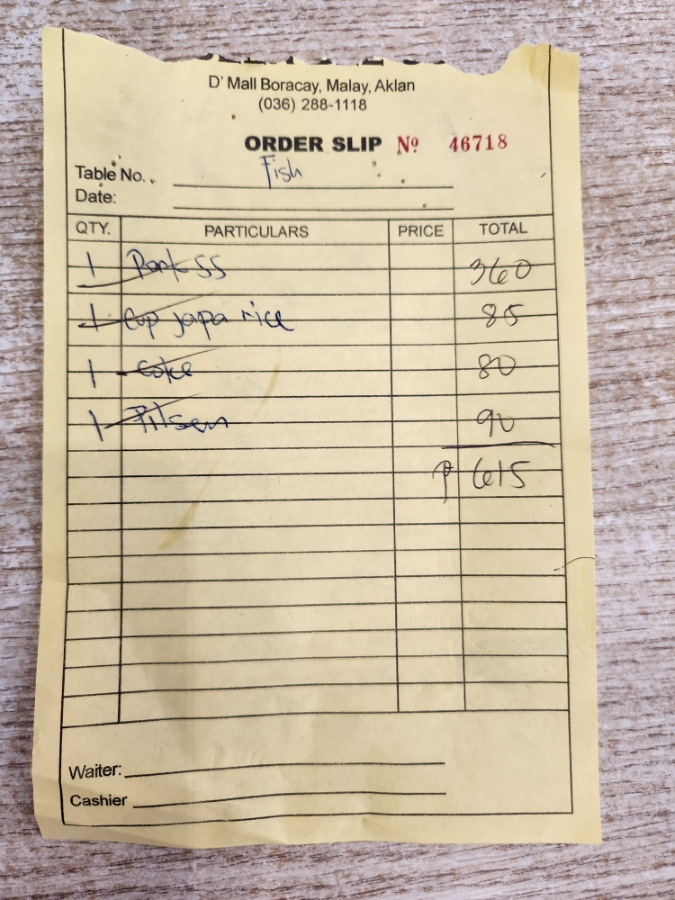 D' Mall Boracay, Malay, Aklan
(036) 288-1118
ORDER SLIP Nº 46718
Table No. Fish
Date:
QTY. PARTICULARS PRICE TOTAL
1 Pork SS 360
1 Cup japa rice 85
1 Coke 80
1 Pilsen 90
₱ 615
Waiter:
Cashier